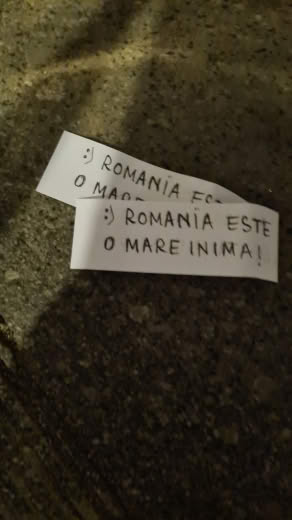 :) ROMANIA ES
O MAR
:) ROMANIA ESTE
O MARE INIMA!